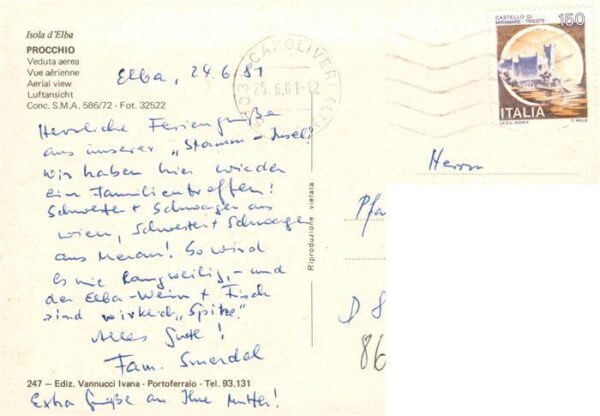 Isola d'Elba
PROCCHIO
Veduta aerea
Vue aérienne
Aerial view
Luftansicht
Conc. S.M.A. 586/72 - Fot. 32522
Elba, 24.6.81
CAPOLIVERI (LI)
25.6.81-12
CASTELLO DI
MIRAMARE - TRIESTE
150
ITALIA
I.P.Z.S. - ROMA
Herrliche Feriengrüße
aus unserer „Stamm-Insel"
wir haben hier wieder
ein Familientreffen!
Schwester + Schwager aus
Wien, Schwester + Schwager
aus Meran! So wird
es nie langweilig, - und
der Elba-Wein + Fisch
sind wirklich „Spitze".
Alles Gute!
Fam.
Riproduzione vietata
Herrn
Pfa
D 8
86
247 – Ediz. Vannucci Ivana - Portoferraio - Tel. 93.131
Extra Grüße an Ihre Mutter!